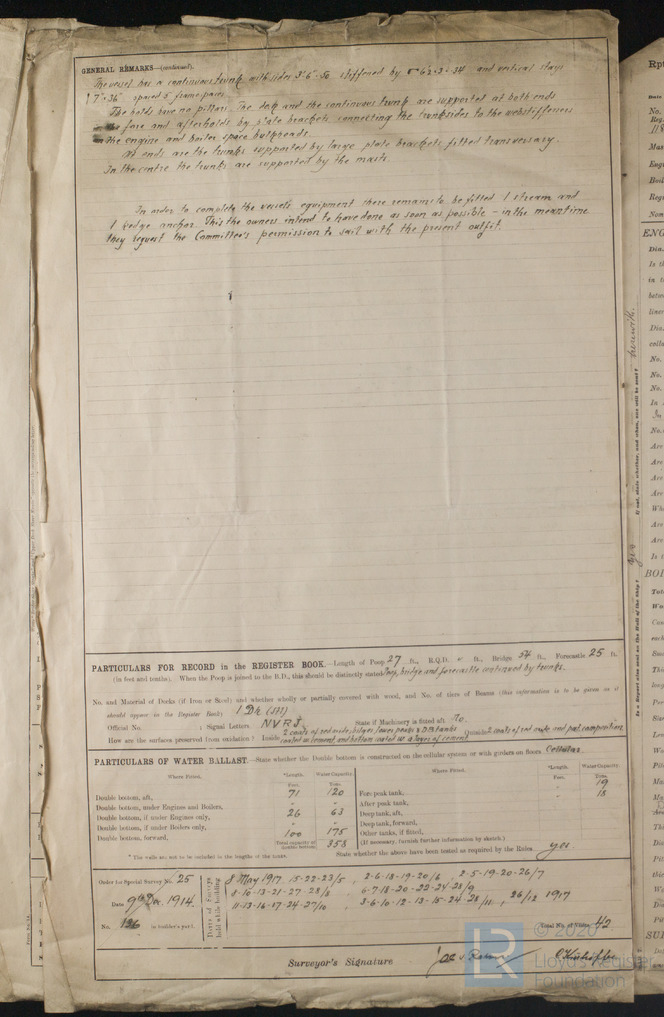 GENERAL REMARKS—(continued).
The vessel has a continuous trunk with sides 3'6"·50 stiffened by 6½·3·34 and vertical stays
7"·36" spaced 5 frame spaces
The holds have no pillars. The deck and the continuous trunk are supported at both ends
fore and afterholds by plate brackets connecting the trunksides to the webstiffeners
on the engine and boiler space bulkheads.
At ends are the trunks supported by large plate brackets fitted transversary.
In the centre the trunks are supported by the masts.
In order to complete the vessels equipment there remains to be fitted 1 stream and
1 kedge anchor. This the owners intend to have done as soon as possible – in the meantime
they request the Committee's permission to sail with the present outfit.
PARTICULARS FOR RECORD in the REGISTER BOOK.—Length of Poop 27 ft., R.Q.D. " ft., Bridge 54 ft., Forecastle 25 ft.
(in feet and tenths). When the Poop is joined to the B.D., this should be distinctly stated Poop, bridge and forecastle continued by trunks.
No. and Material of Decks (if Iron or Steel) and whether wholly or partially covered with wood, and No. of tiers of Beams (this information is to be given as it
should appear in the Register Book) 1 Dk (Stl)
Official No. ; Signal Letters NVRJ State if Machinery is fitted aft No.
How are the surfaces preserved from oxidation? Inside 2 coats of red oxide, bilges, lower peaks & DB tanks coated w. cement, and bottom coated w. 2 layers of cement Outside 2 coats of red oxide and pat. composition
PARTICULARS OF WATER BALLAST.—State whether the Double bottom is constructed on the cellular system or with girders on floors Cellular
Where Fitted. *Length. Water Capacity. Where Fitted. *Length. Water Capacity.
Feet. Tons. Feet. Tons.
Double bottom, aft, 71 120 Fore peak tank, " 19
Double bottom, under Engines and Boilers, " " After peak tank, " 18
Double bottom, if under Engines only, 26 63 Deep tank, aft,
Double bottom, if under Boilers only, " " Deep tank, forward,
Double bottom, forward, 100 175 Other tanks, if fitted,
(Total capacity of double bottom) 358 (If necessary, furnish further information by sketch.)
* The wells are not to be included in the lengths of the tanks. State whether the above have been tested as required by the Rules. yes
Order for Special Survey No. 25
Date 9th Dec. 1914.
No. 136 in builder's yard.
Dates of Surveys held while building
8 May 1917. 15-22-23/5, 2-6-18-19-20/6, 2-5-19-20-26/7
8-10-13-21-27-28/8, 6-7-18-20-22-24-28/9
11-13-16-17-24-27/10, 3-6-10-12-13-15-24-28/11, 28/12 1917
Total No. of Visits 42
Surveyor's Signature
© 2020
LR
Lloyd's Register
Foundation